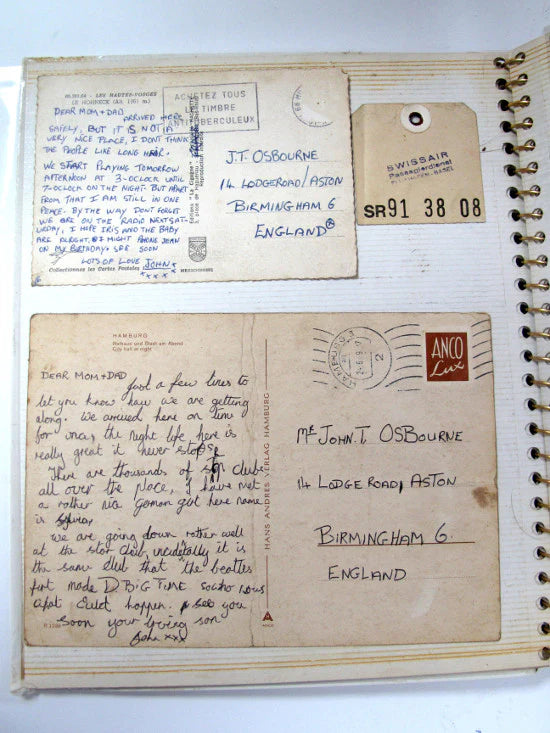 LES HAUTES-VOSGES
LE HOHNECK (Alt. 1361 m.)
DEAR MOM + DAD
ARRIVED HERE
SAFELY, BUT IT IS NOT A
VERY NICE PLACE, I DONT THINK
THE PEOPLE LIKE LONG HAIR.
WE START PLAYING TOMORROW
AFTERNOON AT 3-OCLOCK UNTIL
7-OCLOCK ON THE NIGHT. BUT APART
FROM THAT I AM STILL IN ONE
PEACE. BY THE WAY DONT FORGET
WE ARE ON THE RADIO NEXT SAT
URDAY, I HOPE IRIS AND THE BABY
ARE ALRIGHT, I MIGHT PHONE JEAN
ON MY BIRTHDAY. SEE SOON
LOTS OF LOVE JOHN
xxx
Collectionnez les Cartes Postales
ACHETEZ TOUS
LE TIMBRE
ANTITUBERCULEUX
J.T. OSBOURNE
14 LODGE ROAD/ASTON
BIRMINGHAM 6
ENGLAND
SWISSAIR
Passagierdienst
SR91 38 08
HAMBURG
Rathaus und Stadt am Abend
City hall at night
DEAR MOM + DAD
Just a few lines to
let you know how we are getting
along. We arrived here on time
for once, the night life here is
really great it never stops
There are thousands of clubs
all over the place, I have met
a rather nice german girl here name
is
we are going down rather well
at the star club, incidetally it is
the same club that the beatles
first made D BIG TIME so who nows
what could happen. see you
soon your loving son
John xxx
HANS ANDRES VERLAG HAMBURG
ANCO
Lux
Mr JOHN. T OSBOURNE
14 LODGE ROAD, ASTON
BIRMINGHAM 6.
ENGLAND